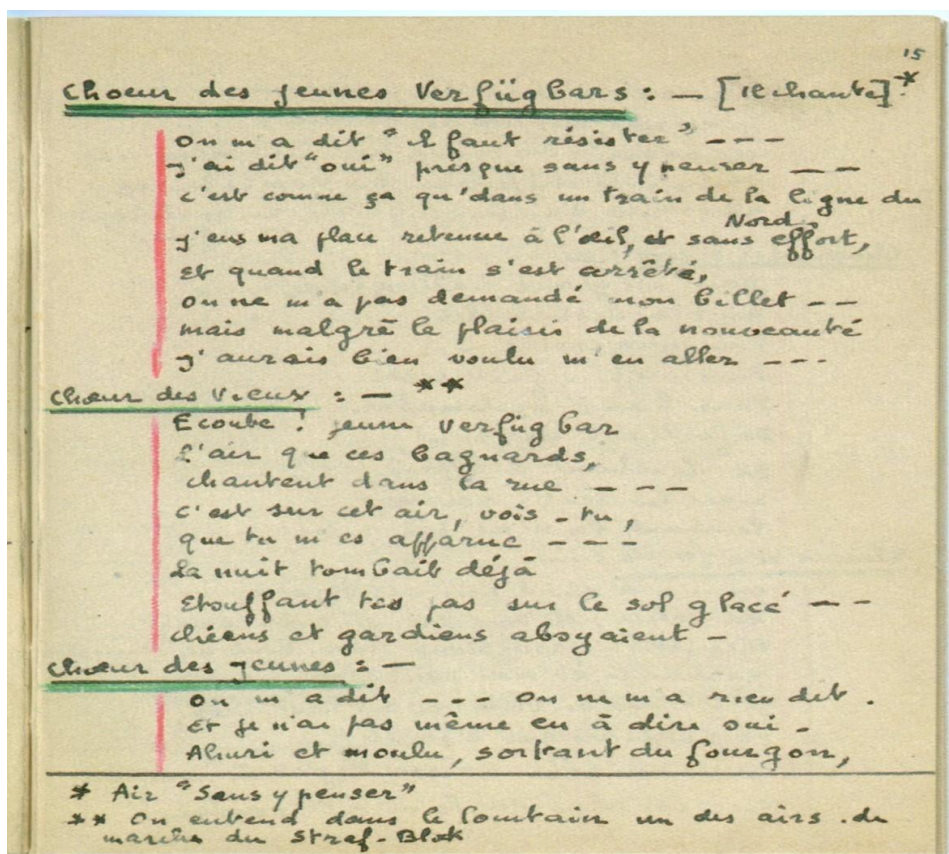 15
Choeur des jeunes Verfügbars : — [rechante]*
On m'a dit "il faut résister" - - -
J'ai dit "oui" presque sans y penser - -
c'est comme ça qu'dans un train de la ligne du
Nord.
j'eus ma place retenue à l'œil, et sans effort,
Et quand le train s'est arrêté,
on ne m'a pas demandé mon billet - -
mais malgré le plaisir de la nouveauté
J'aurais bien voulu m'en aller - - -
Chœur des vieux : — **
Ecoute ! jeune Verfügbar
L'air que ces bagnards,
chantent dans la rue - - -
c'est sur cet air, vois-tu,
que tu m'es apparue - - -
La nuit tombait déjà
Etouffant tes pas sur le sol glacé - -
chiens et gardiens aboyaient -
Chœur des jeunes : —
On m'a dit - - - on ne m'a rien dit .
Et je n'ai pas même eu à dire oui -
Ahuri et moulu, sortant du fourgon,
* Air "Sans y penser"
** On entend dans le lointain un des airs de
marche du Straf-Blok